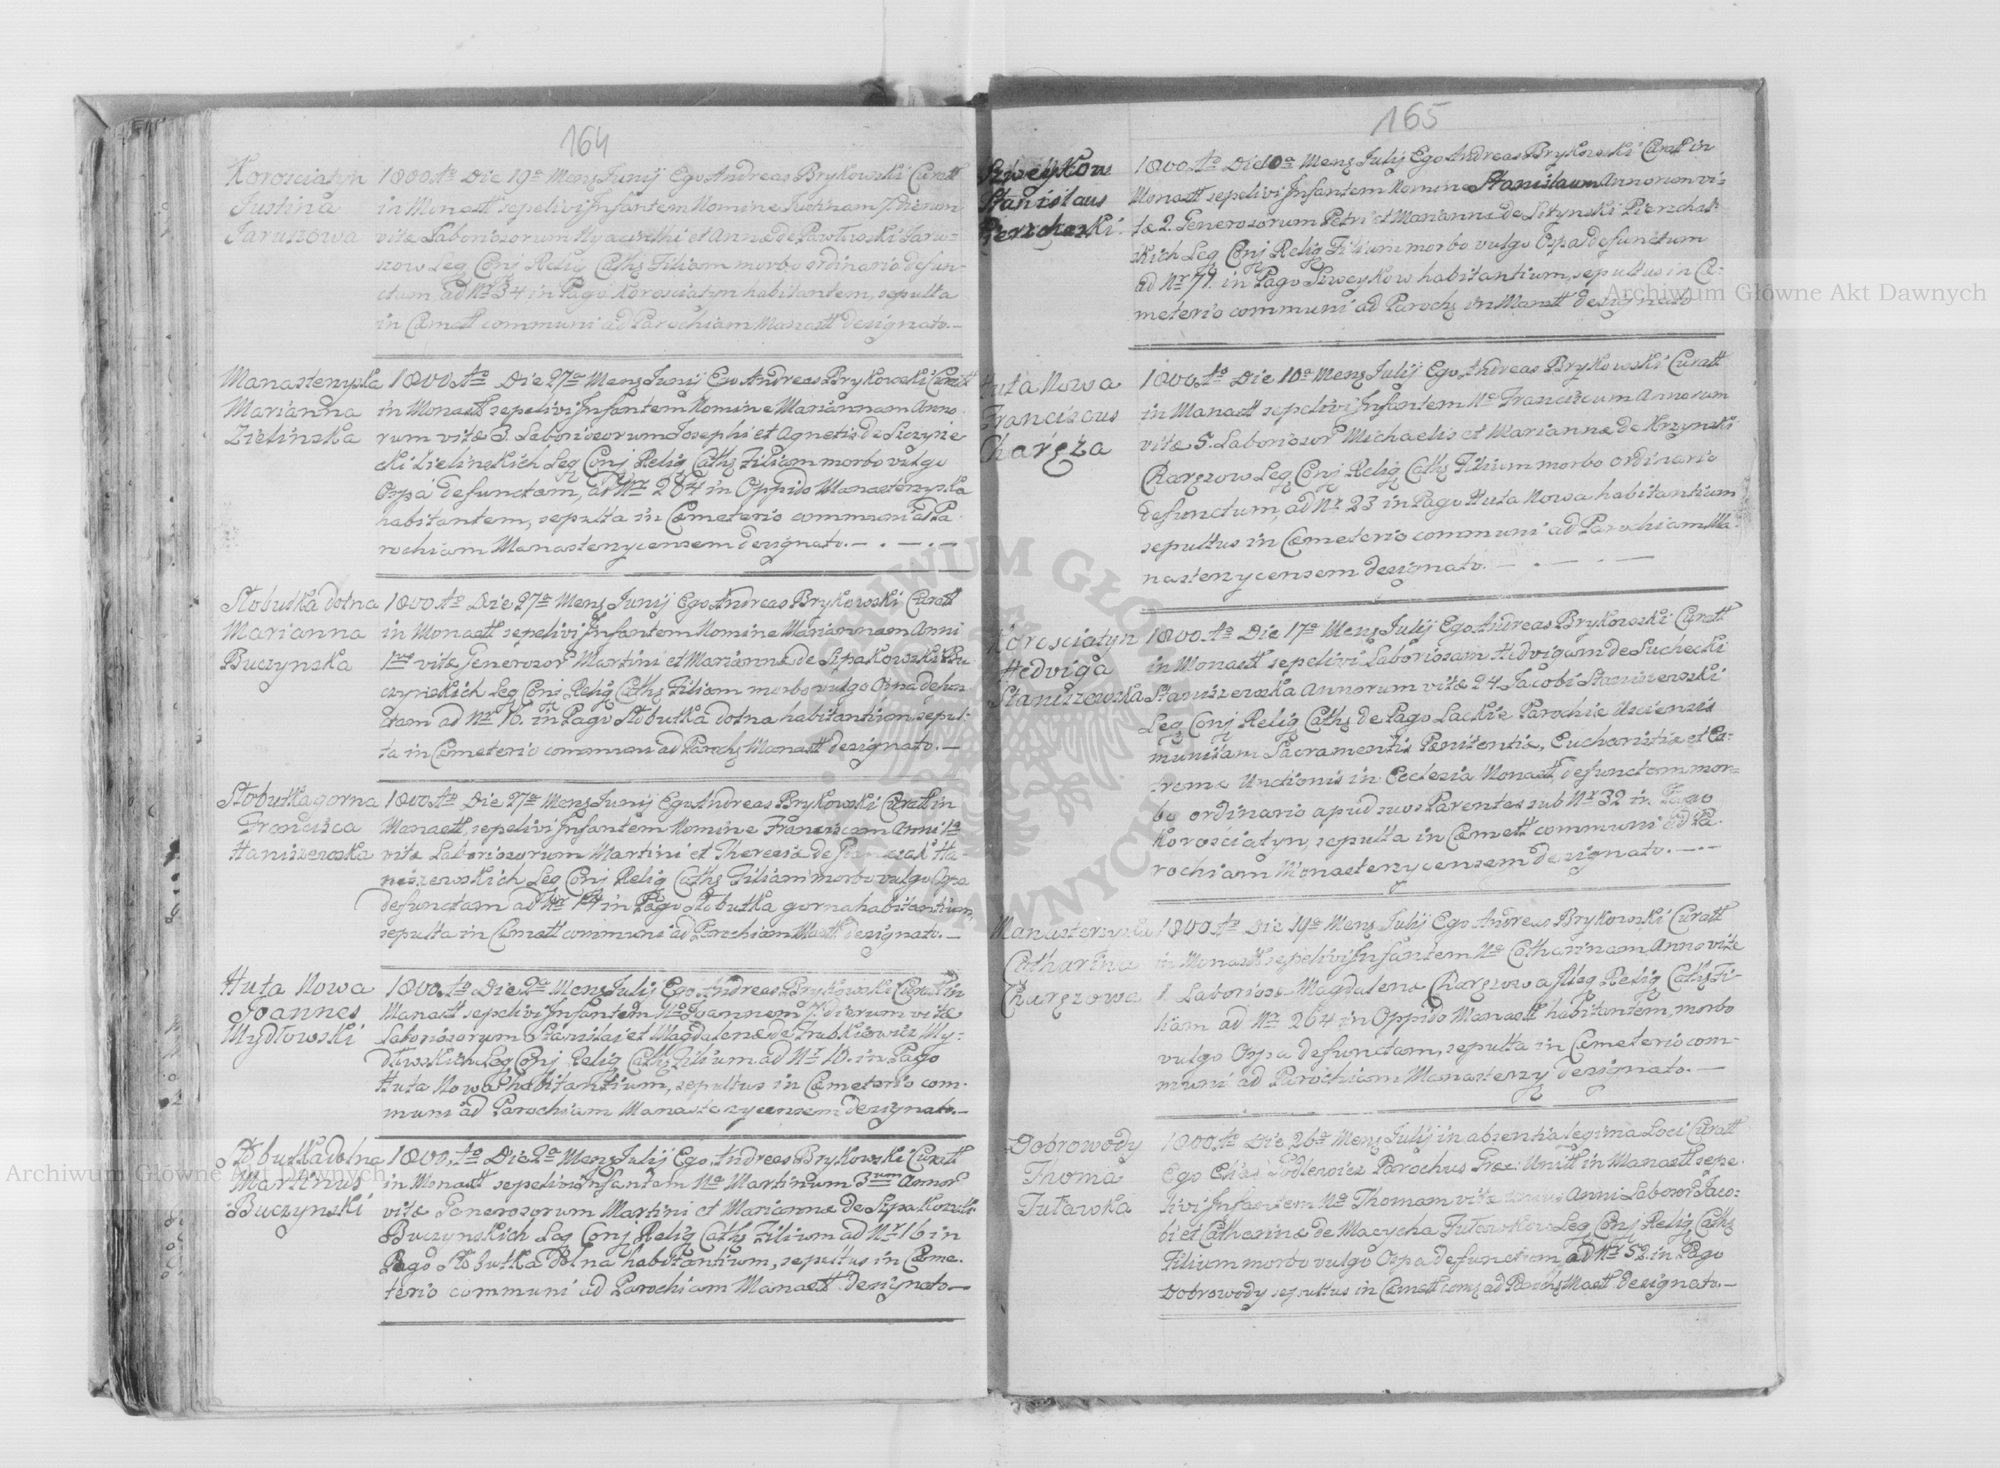 164
Korosciatyn
Justina
Jaruzowa
1800. Ao Die 19a Mens Junij Ego Andreas Brykowski Curatt
in Monast sepelivi Infantem Nomine Justinam 7. Dierum
vitæ Laboriosorum Hyacinthi et Annæ de Pawłowski Jaru-
zow Leg Conj Relig Caths Filiam morbo ordinario defun-
ctam ad Nr 34 in Pago Korosciatyn habitantem, sepulta
in Cæmett communi ad Parochiam Monastt designato.—
Manasterzyska
Marianna
Zielinska
1800. Ao Die 27a Mens Junij Ego Andreas Brykowski Curatt
in Monastt sepelivi Infantem Nomine Mariannam Anno-
rum vitæ 3. Laboriosorum Josephi et Agnetis de
cki Zielinskich Leg Conj Relig Caths Filiam morbo vulgo
Ospa defunctam, ad Nr 284 in Oppido Manasterzyska
habitantem, sepulta in Cæmeterio communi ad Pa-
rochiam Manasterzycensem designato.— . — . —
Słobutka dolna
Marianna
Buczynska
1800. Ao Die 27a Mens Junij Ego Andreas Brykowski Curatt
in Monastt sepelivi Infantem Nomine Mariannam Anni
vitæ Generosor Martini et Mariannæ de Szpakowski Bu-
czynskich Leg Conj Relig Caths Filiam morbo vulgo Ospa defun-
ctam ad Nr 16. in Pago Słobutka dolna habitantium sepul-
ta in Cæmeterio communi ad Parochs Monastt designato.—
Słobutka gorna
Francisca
Haniszewska
1800. Ao Die 27a Mens Junij Ego Andreas Brykowski Curatt in
Monastt, sepelivi Infantem Nomine Franciscam Anni
vitæ Laboriosorum Martini et Theresiæ de Ha-
niszewskich Leg Conj Relig Caths Filiam morbo vulgo Ospa
defunctam ad Nr 14 in Pago Słobutka gorna habitantium,
sepulta in Cæmett communi ad Parochiam Mastt designato.—
Huta Nowa
Joannes
Mydłowski
1800. Ao Die 2a Mens Julij Ego Andreas Brykowski Curatt in
Monastt sepelivi Infantem No Joannem 7. dierum vitæ
Laboriosorum Stanislai et Magdalenæ de Trubkiewicz My-
dłowskich Leg Conj Relig Caths Filium ad Nr 10. in Pago
Huta Nowa habitantium, sepultus in Cæmeterio com-
muni ad Parochiam Manasterzycensem designato.—
Słobutka dolna
Martinus
Buczynski
1800. Ao Die 2a Mens Julij Ego Andreas Brykowski Curatt
in Monast sepelivi Infantem No Martinum 3 Annor
vitæ Generosorum Martini et Mariannæ de Szpakowski
Buczynskich Leg Conj Relig Caths Filium ad Nr 16 in
Pago Słobutka Dolna habitantium, sepultus in Cæme-
terio communi ad Parochiam Monastt designato—
165
Szweykow
Stanislaus
Pierzchaski.
1800. Ao Die 10a Mens Julij Ego Andreas Brykowski Curatt in
Monastt sepelivi Infantem Nomine Stanislaum Annorum vi-
tæ 2. Generosorum Petri et Mariannæ de Pierzchal-
skich Leg Conj Relig Filium morbo vulgo Ospa defunctum
ad Nr 79. in Pago Szweykow habitantium, sepultus in Cæ-
meterio communi ad Parochs in Monastt designato
Huta Nowa
Franciscus
Charęza
1800. Ao Die 10a Mens Julij Ego Andreas Brykowski Curatt
in Monastt sepelivi Infantem No Franciscum Annorum
vitæ 5. Laboriosor Michaelis et Mariannæ de Krzynski
Charęzow Leg Conj Relig Caths Filium morbo ordinario
defunctum, ad Nr 23 in Pago Huta Nowa habitantium
sepultus in Cæmeterio communi ad Parochiam Ma-
nasterzycensem designato.— . — —
Korosciatyn
Hedviga
Staniszewska
1800. Ao Die 17a Mens Julij Ego Andreas Brykowski Curatt
in Monastt sepelivi Laboriosam Hedvigam de Suchecki
Staniszewska Annorum vitæ 24 Jacobi Staniszewski
Leg Conj Relig Caths de Pago Lackie Parochiæ Usciensis
munitam Sacramentis Pænitentiæ, Eucharistiæ et Ex-
tremæ Unctionis in Ecclesia Monast, defunctam mor-
bo ordinario apud suos Parentes sub Nr 32 in Pago
Korosciatyn, sepulta in Cæmett communi ad Pa-
rochiam Monasterzycensem designato.—.—
Manasterzyska
Catharina
Charęzowa
1800. Ao Die 19a Mens Julij Ego Andreas Brykowski Curatt
in Monastt sepelivi Infantem No Catharinam Anno vitæ
1. Laboriosæ Magdalenæ Charęzowa Relig Caths Fi-
liam ad Nr 264 in Oppido Monastt habitantem, morbo
vulgo Ospa defunctam, sepulta in Cæmeterio com-
muni ad Parochiam Manasterzy designato.—
Dobrowody
Thoma
Tutawska
1800. Ao Die 26a Mens Julij in absentia legima Loci Curatt
Ego Elias Godlewicz Parochus Græc: Unitt in Manastt sepe-
livi Infantem No Thomam vitæ Anni Laborior Jaco-
bi et Catharinæ de Macycha Tutawskow Leg Conj Relig Caths
Filium morbo vulgo Ospa defunctum ad Nr 52. in Pago
Dobrowody sepultus in Cæmett coms ad Parochs Mastt designato.—
Archiwum Główne Akt Dawnych
Archiwum Główne Akt Dawnych
ARCHIWUM GŁÓWNE AKT DAWNYCH